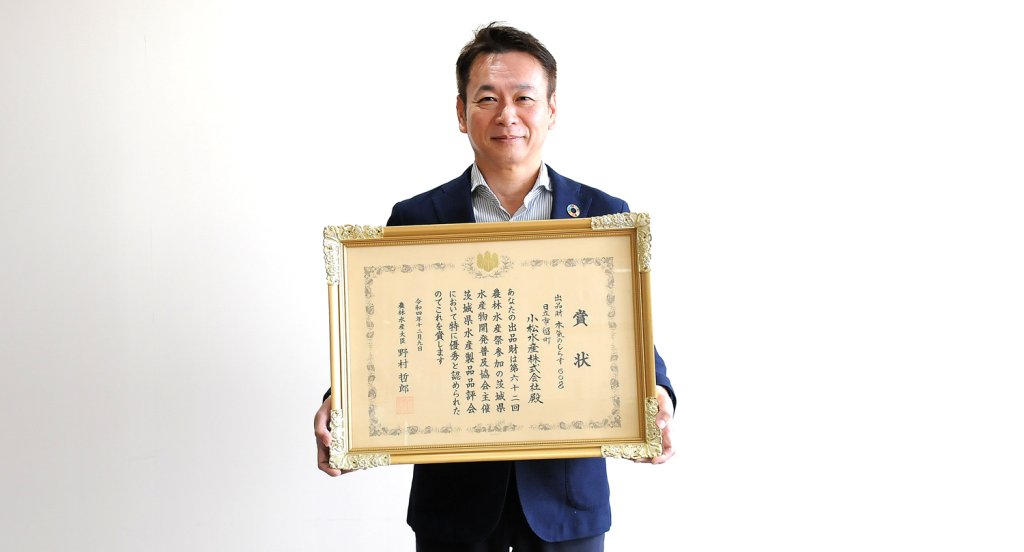 賞状
出品財 本気のしらす 60g
日立市留町
小松水産株式会社殿
あなたの出品財は第六十二回
農林水産祭参加の茨城県
水産物開発普及協会主催
茨城県水産製品品評会
において特に優秀と認められた
のでこれを賞します
令和四年十二月九日
農林水産大臣 野村哲郎